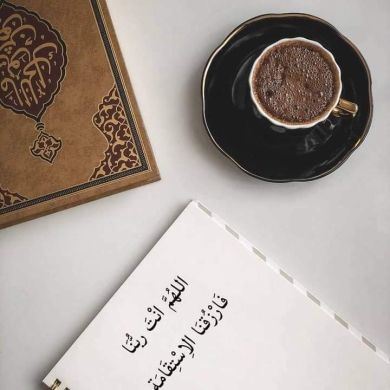 اللهُمَّ أنْتَ ربُّنَا
فَارْزُقْنَا الِاسْتِقَامَة